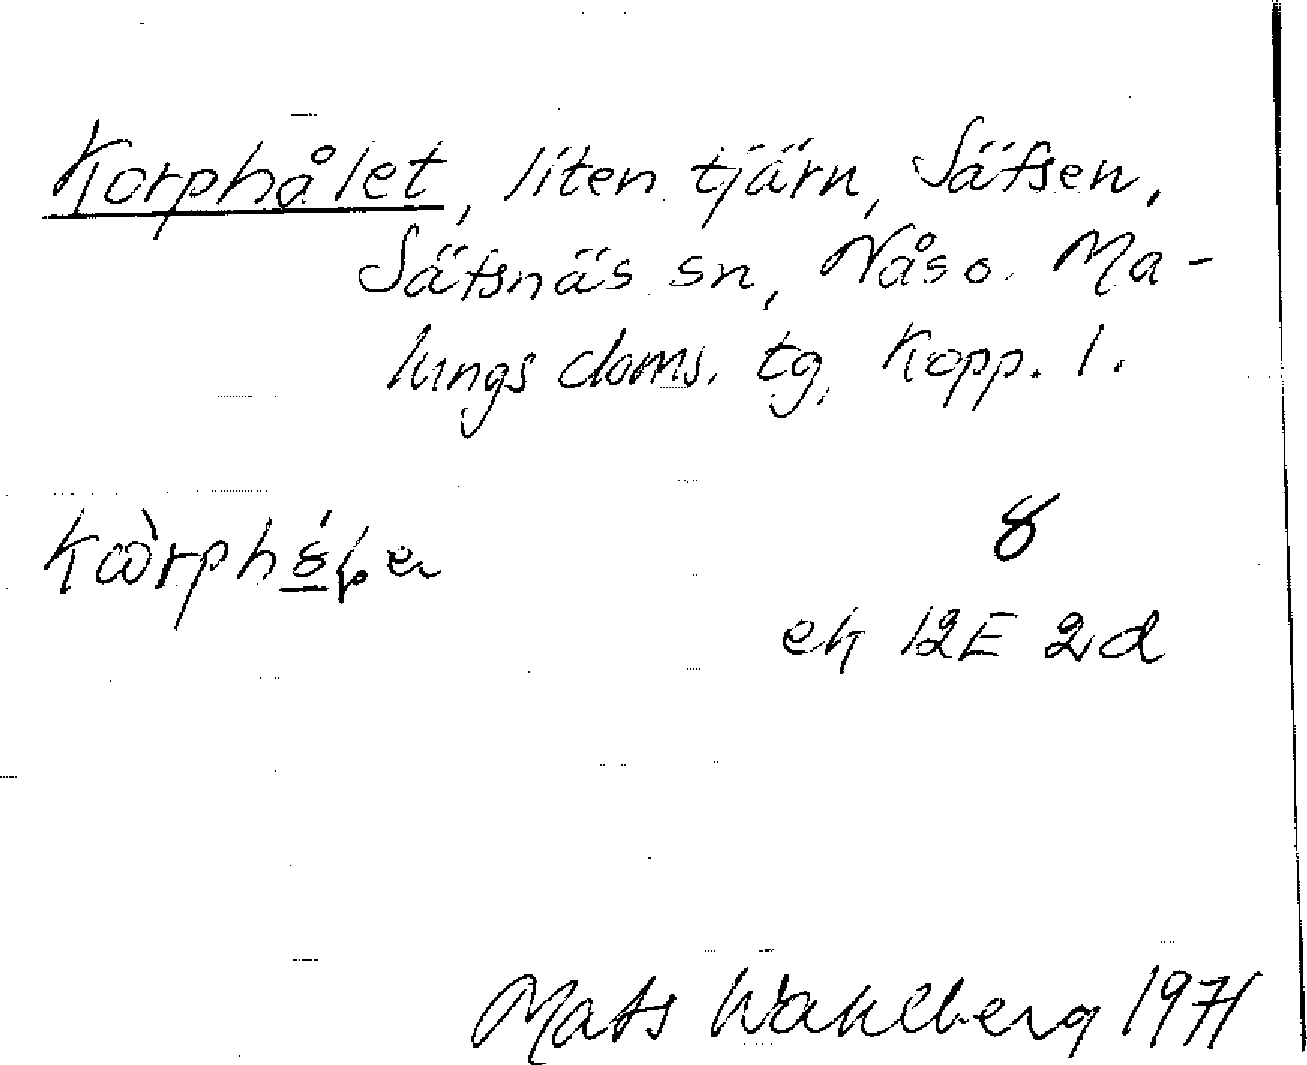 Korphålet, liten tjärn, Säfsen,
Säfsnäs sn, Nås o. Ma-
lungs doms. tg, Kopp. l.
8
ek 12E 2d
Mats Wahlberg 1971